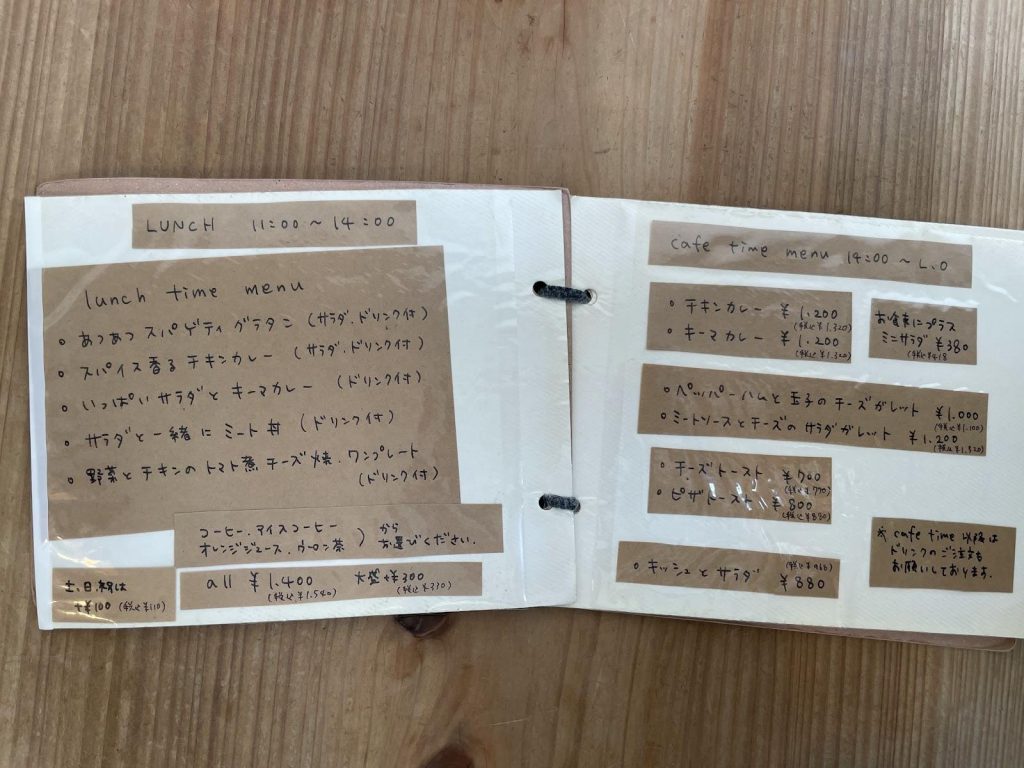 LUNCH 11:00〜14:00
lunch time menu
◦ あつあつ スパゲティ グラタン (サラダ、ドリンク付)
◦ スパイス香る チキンカレー (サラダ、ドリンク付)
◦ いっぱい サラダと キーマカレー (ドリンク付)
◦ サラダと一緒に ミート丼 (ドリンク付)
◦ 野菜とチキンの トマト煮 チーズ焼、ワンプレート
(ドリンク付)
コーヒー、アイスコーヒー
オレンジジュース、ウーロン茶
) から
お選びください。
土、日、祝は
+¥100 (税込¥110)
all ¥1.400 大盛+¥300
(税込¥1.540) (税込¥330)
cafe time menu 14:00〜L.O
◦ チキンカレー ¥1.200
(税込¥1.320)
◦ キーマカレー ¥1.200
(税込¥1.320)
お食事にプラス
ミニサラダ ¥380
(税込¥418
◦ ペッパーハムと 玉子の チーズガレット ¥1.000
(税込¥1.100)
◦ ミートソースとチーズの サラダガレット ¥1.200
(税込¥1.320)
◦ チーズトースト ¥700
(税込¥770)
◦ ピザトースト ¥800
(税込¥880)
◦ キッシュと サラダ (税込¥968)
¥880
※ cafe time 以降は
ドリンクのご注文も
お願いしております。